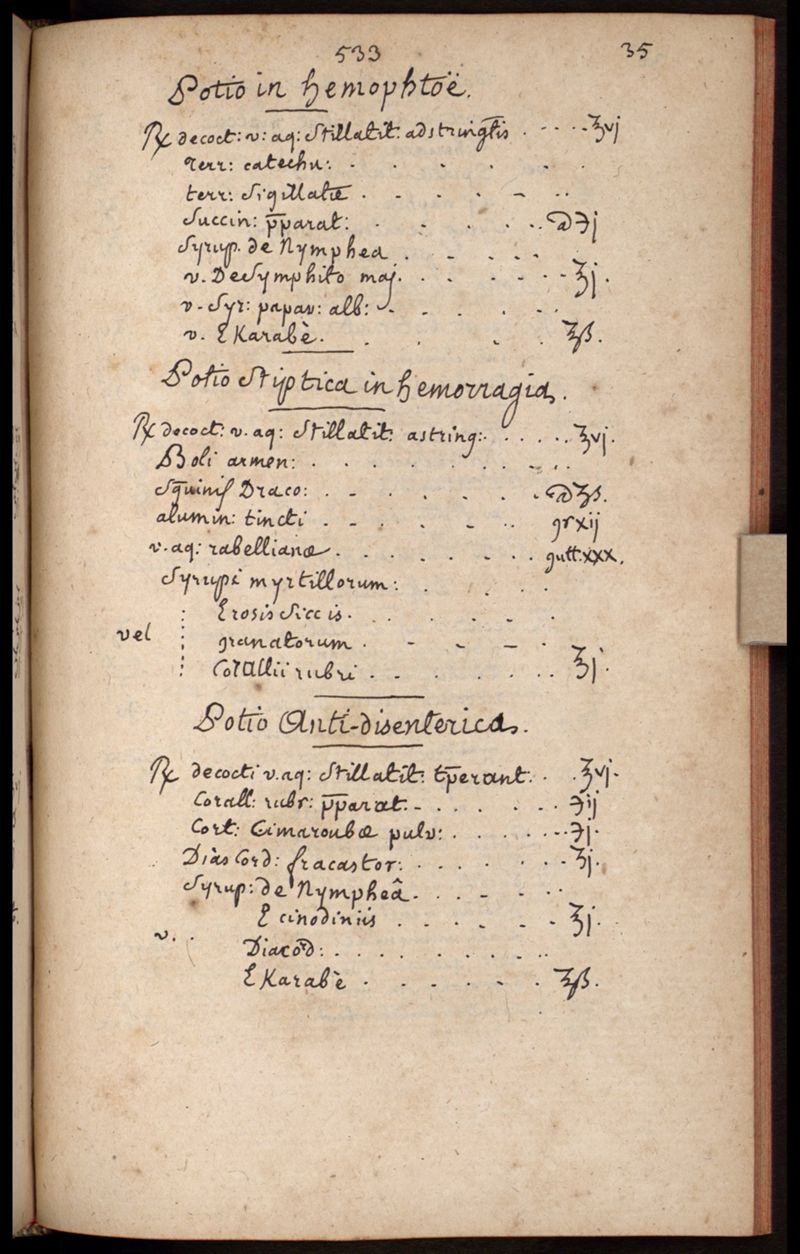 533 35
Potio in hemophtoë.
℞ decoct: v: aq: Stillatit: adstring̅tis . . . . ℥vj
Terr: catechu: . . . . . .
terr: Sigillatæ . . . . . . .
Succin: p̅parat: . . . . . . a̅ ℈j
Syrup. de Nymphea . . . . .
v. De Symphito maj. . . . . . ℥j.
v. Syr: papav: alb: . . . . . .
v. E Karabè. . . . . ℥ß.
Potio Stiptica in hemorragia.
℞ decoct: v. aq: Stillatit: astring: . . . . . ℥vj.
Boli armen: . . . . . . . . . .
Sguinis Draco: . . . . . . . a̅ ʒß.
alumin: tincti . . . . . . . grxij
v. aq: rabellianæ . . . . . . . . gutt: xxx.
Syrupi myrtillorum: . . . .
E rosis Siccis . . . . . .
vel granatorum . . . . .
Corallii rubri . . . . . . . ℥j.
Potio Anti-disenterica.
℞ decocti v. aq: Stillatit: tp̅erant: . . ℥vj.
Corall: rubr: p̅parat: . . . . . . ℈ij
Cort: Cimaroubæ pulv: . . . . . . . ℈j.
Diascord: fracastor: . . . . . . . ʒj.
Syrup: de Nympheâ . . . . . .
E cinodiniis . . . . . . ℥j.
v. Diacōd: . . . . . . . . . .
E Karabè . . . . . . ℥ß.